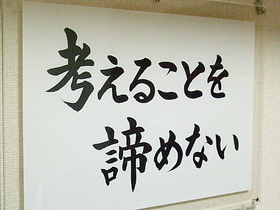 考えることを
諦めない